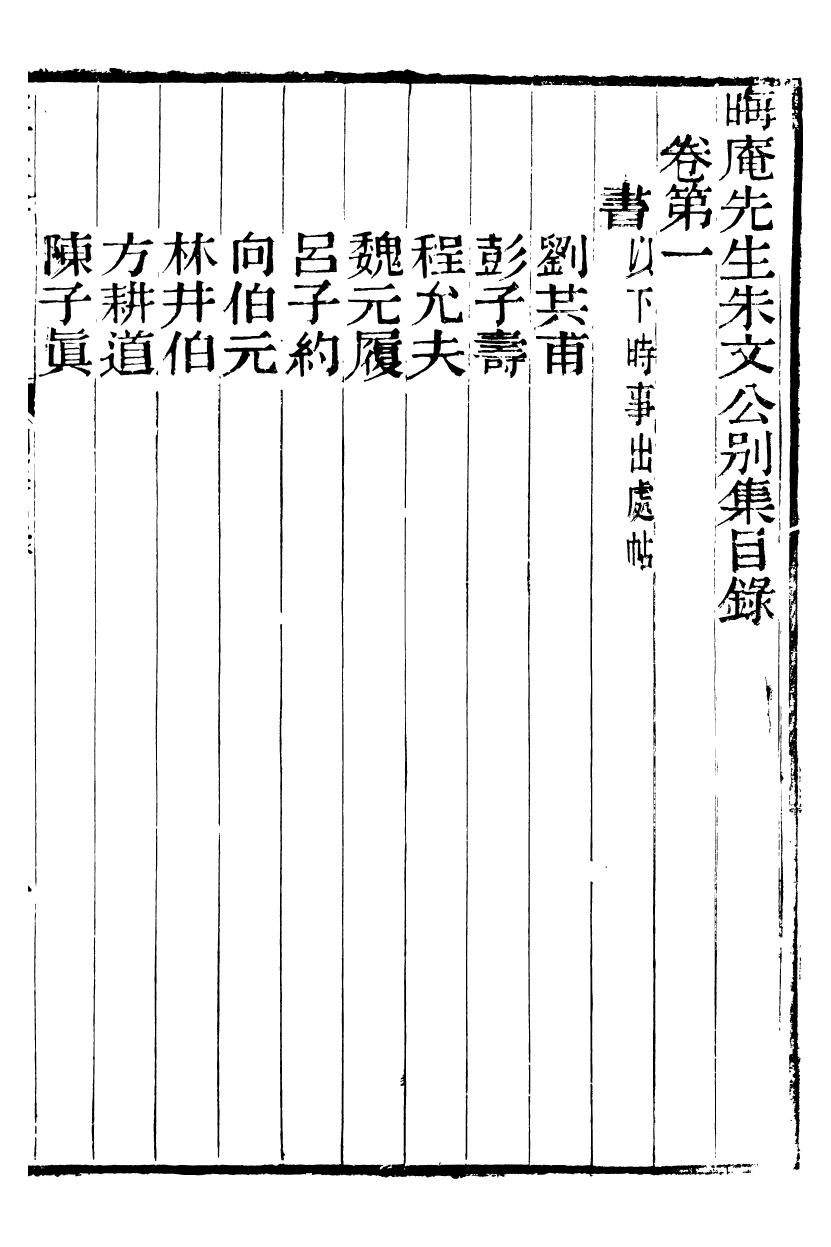 晦庵先生朱文公别集目錄
卷第一
書以下時事出處帖
劉共甫
彭子壽
程允夫
魏元履
呂子約
向伯元
林井伯
方耕道
陳子眞